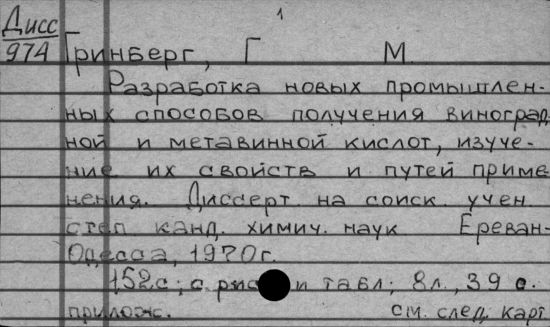 1
Дисс
974
Гринберг, Г М.
Разработка новых промышлен-
ных способов получения виноград
ной и метавинной кислот, изуче-
ние их свойств и путей приме
нения. Диссерт. на соиск. учен.
степ. канд. химич. наук Ереван-
Одесса, 1970г.
152с; с рис и табл; 8л., 39 с.
прилож. см. след. карт